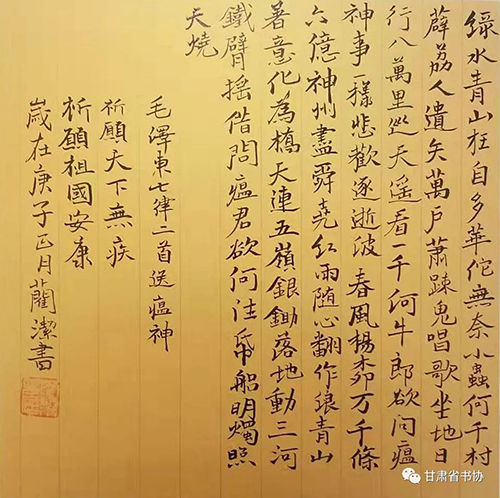 綠水青山枉自多華佗無奈小蟲何千村
薜荔人遺矢萬户蕭踈鬼唱歌坐地日
行八萬里巡天遥看一千何牛郎欲问瘟
神事一樣悲歡逐逝波春風楊柳万千條
六億神州盡舜堯红雨随心翻作浪青山
著意化為橋天連五嶺銀鋤落地動三河
鐵臂摇借問瘟君欲何往帋船明燭照
天燒
毛澤東七律二首送瘟神
祈願天下無疾
祈願祖國安康
歲在庚子正月藺潔書
甘肃省书协